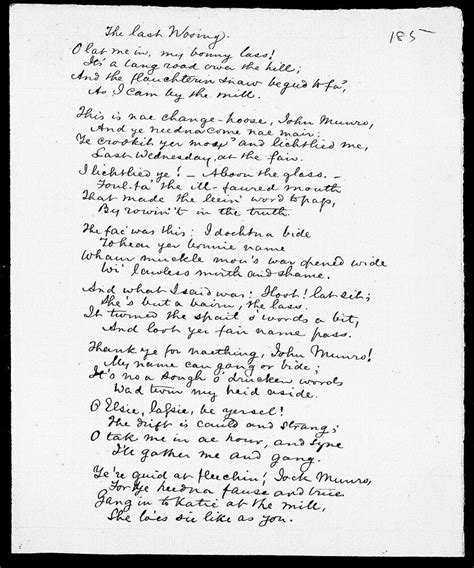 The last Wooing.
185
O lat me in, my bonny lass!
It's a lang road ower the hill;
And the flauchterin snaw begud to fa',
As I cam by the mill.
This is nae change-hoose, John Munro,
And ye needna come nae mair:
Ye crookit yer mou' and lichtlied me,
Last Wednesday, at the fair.
I lichtlied ye! — Aboon the glass. —
Foul-fa' the ill-faured mouth
That made the leein' word to pass,
By rowin't in the truth.
The fac' was this: I dochtna bide
To hear yer bonnie name
Whaur muckle mou's war opened wide
Wi' lawless mirth and shame.
And what I said was: Hoot! lat sit;
She's but a bairn, the lass.
It turned the spait o' words a bit,
And loot yer fair name pass.
Thank ye for naething, John Munro!
My name can gang or bide;
It's no a sough o' drucken words
Wad turn my heid aside.
O Elsie, lassie, be yersel!
The drift is cauld and strang;
O tak me in ae hour, and syne
I'll gather me and gang.
Ye're guid at fleechin', Jock Munro,
For ye heedna fause and true
Gang in to Katie at the mill,
She lo'es sic like as you.